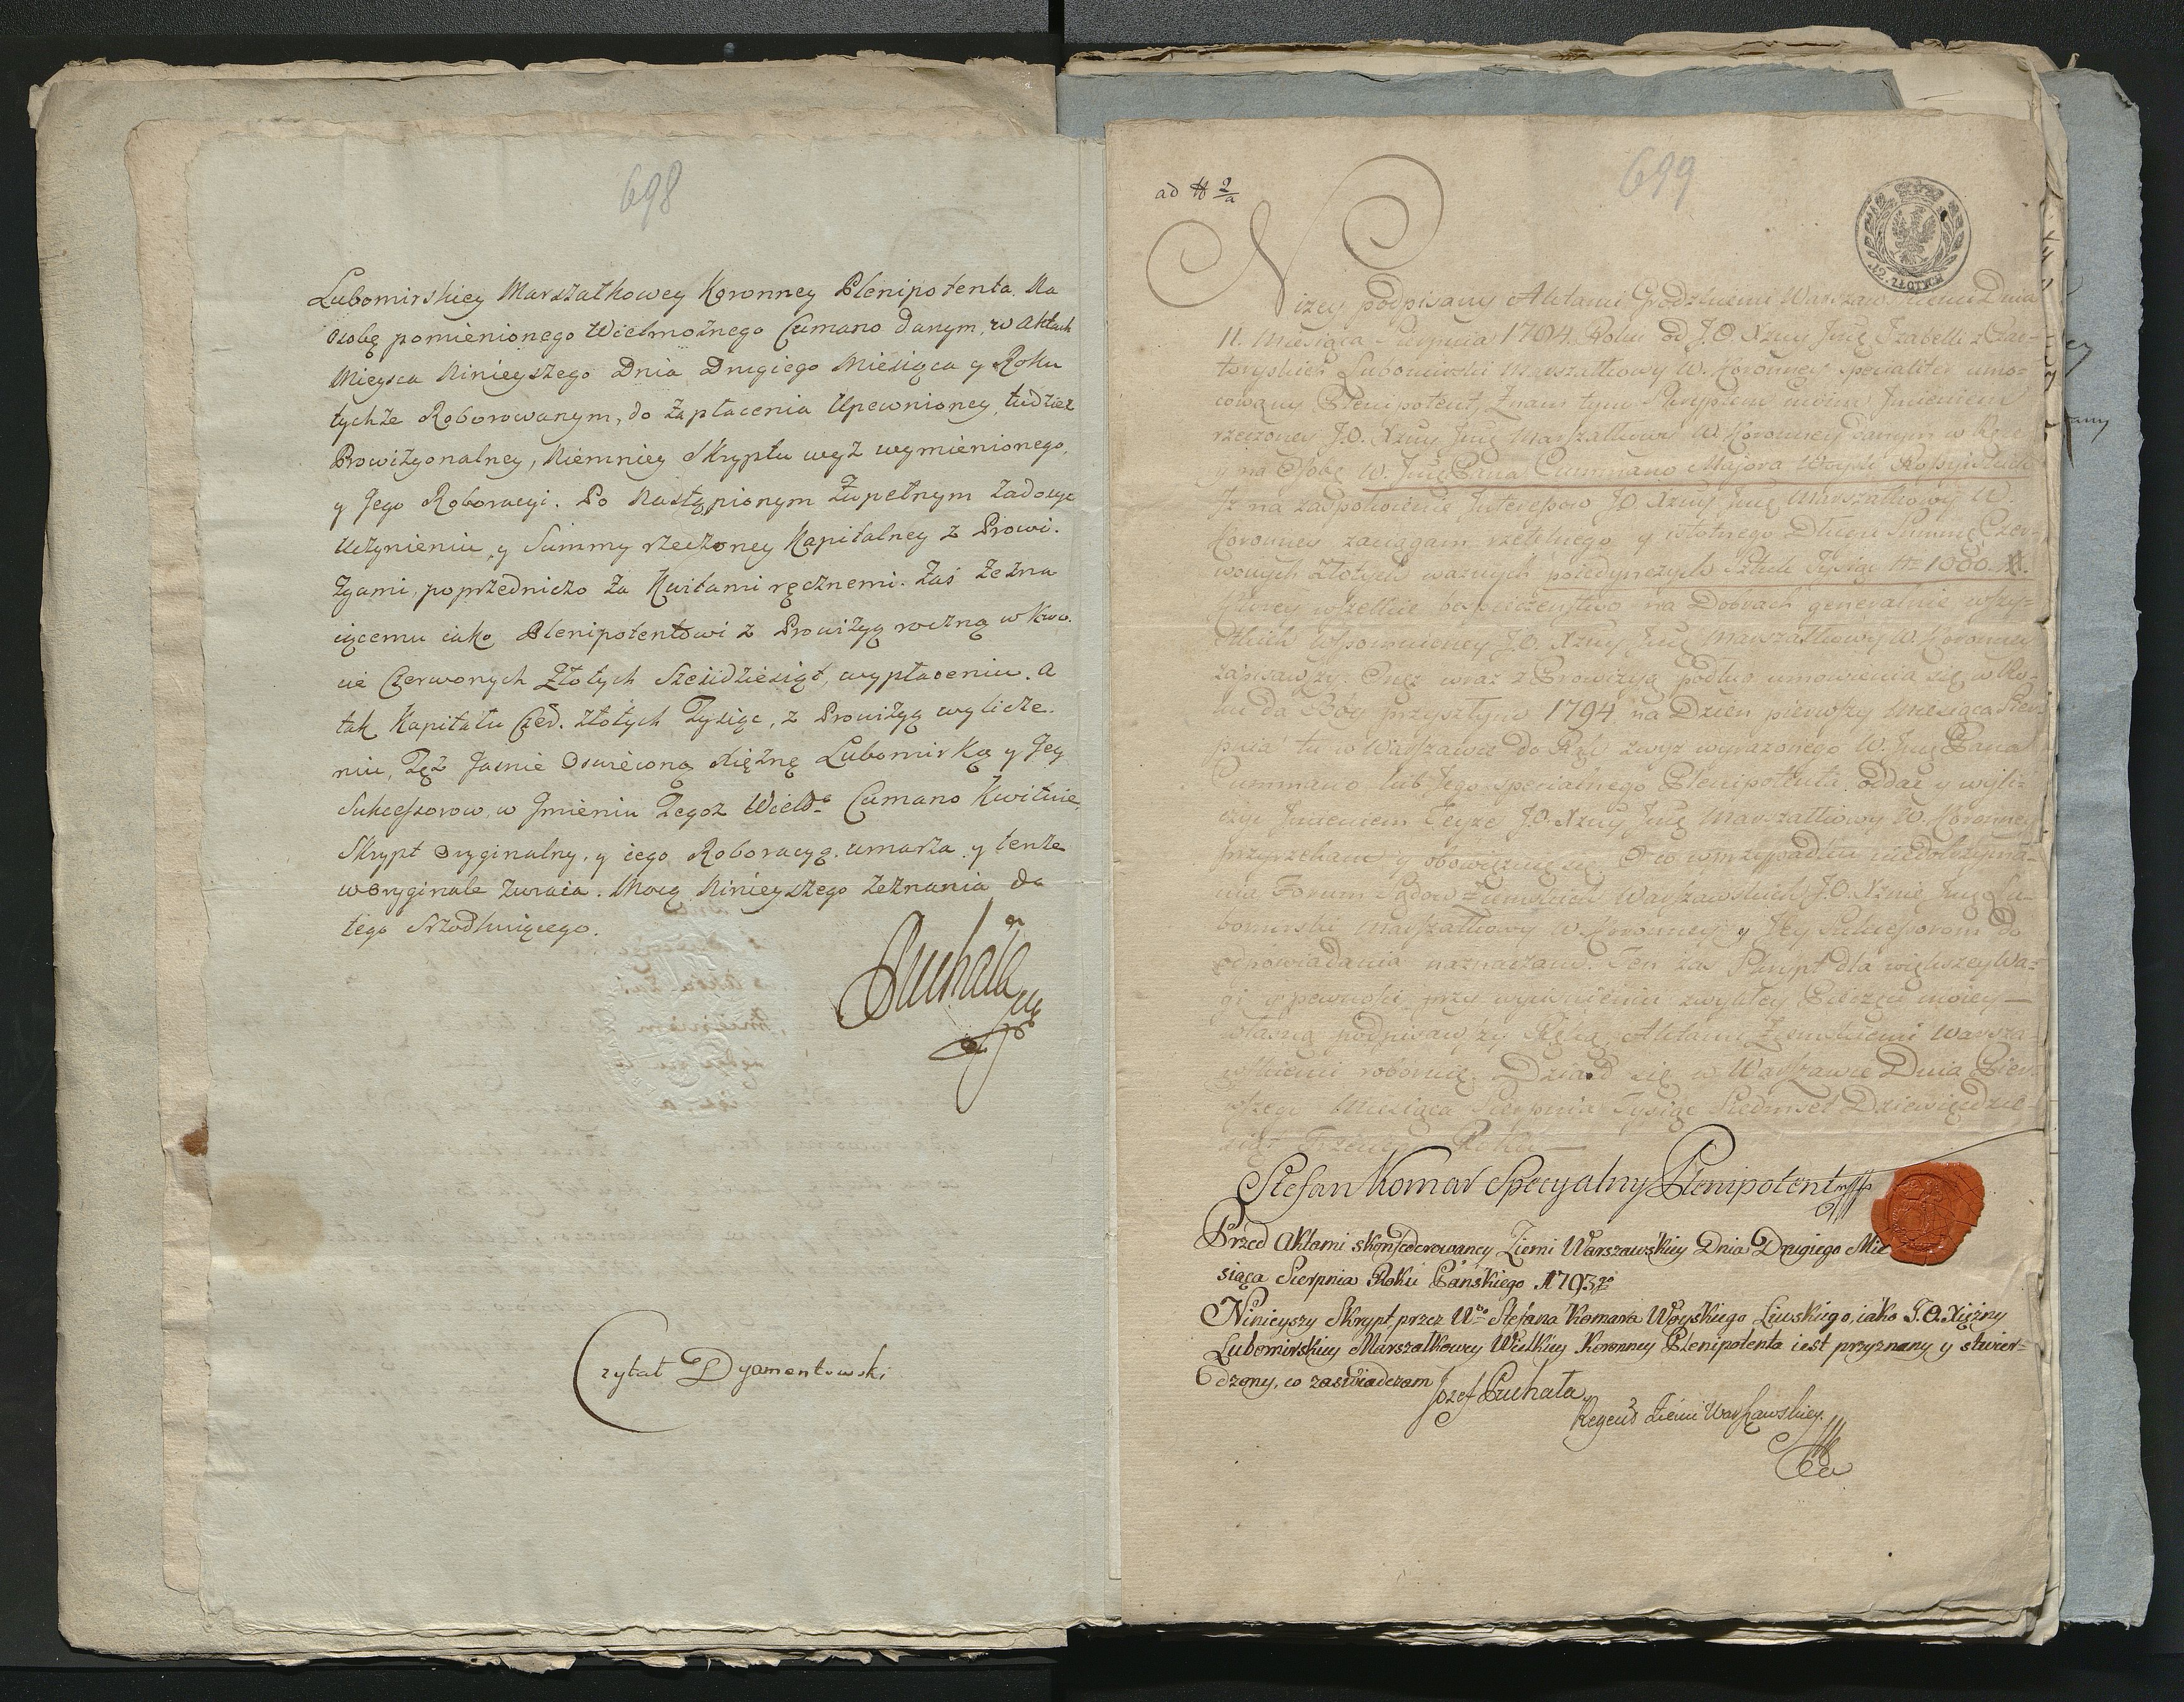 698
Lubomirskiey Marszałkowey Koronney Plenipotenta. Na
Osobę pomienionego Wielmożnego Cumano danym, w Aktach
Mieysca Ninieyszego Dnia Drugiego Miesiąca y Roku
tychże Roborowanym, do zapłacenia Upewnioney, tudzież
Prowizyonalney, Niemniey Skryptu wyż wymienionego,
y Jego Roboracyi. Po Nastąpionym Zupełnym Zadosyc
Uczynieniu, y Summy rzeczoney Kapitalney z Prowi.
zyami, poprzedniczo za Kwitami ręcznemi. Zaś Zezna
iącemu iako Plenipotentowi z Prowizyą roczną w Kwo.
cie Czerwonych Złotych Sześćdziesiąt, wypłaceniu. a
tak Kapitału Czer. Złotych Tysiąc, z Prowizyą wylicze.
niu, Też Jaśnie Oświeconą Xiężnę Lubomirską y Jey
Sukcessorow, w Jmieniu Tegoż Wielo Cumano Kwituie,
Skrypt Oryginalny, y iego Roboracyą. umarza y tenże
w oryginale zwraca. Mocą Ninieyszego Zeznania do
tego Srzodkuiącego.
Puchała
Czytał Dyamentowski
ad # 2/a
699
12. ZŁOTYCH
Niżey podpisany Aktami Grodzkiemi Warszawskiemi Dnia
11. Miesiąca 1784. Roku od J.O. Xzny Jmć Izabelli z Czar=
toryskich Lubomirski Marszałkowy W. Koronney specialiter umo=
cowany Plenipotent, Znam tym Skryptem moim Jmieniem
rzeczoney J.O. Xzny Jmć Marszałkowy W. Koronney danym w Ręce
y na Osobę W. Jmć Pana Cummano Majora Woysk Rossyiskich
Iż na zaspokoienie Interessow J.O. Xzny Jmć Marszałkowy W.
Koronney zaciągam rzetelnego y istotnego Długu Summę Czer=
wonych Złotych ważnych poiedynczych Sztuk Tysiąc # 1000.
Którey wszelkie bezpieczeństwo na Dobrach generalnie wszy=
stkich wspomnioney J.O. Xzny Jmć Marszałkowy W. Koronney
zapisawszy. Onęż wraz z Prowizyą podług umowienia się w Ro=
ku da Bóg przyszłym 1794 na Dzien pierwszy Miesiąca Sier=
pnia tu w Warszawie do Rąk zwyż wyrażonego W. Jmć Pana
Cummano lub Jego specialnego Plenipotenta. oddać y wyli=
czyć Jmieniem Teyże J.O. Xzny Jmć Marszałkowy W. Koronney
przyrzekam y obowiązuię się. A w przypadku niedotrzyma=
nia Forum Sądow Ziemskich Warszawskich J.O. Xznie Jmć Lu=
bomirski Marszałkowy W. Koronney y Jey Sukcessorom do
odpowiadania naznaczam. Ten zas Skrypt dla większey Wa=
gi y pewności przy wyciśnieniu zwykłey Pieczęci moiey —
własną podpisawszy Ręką, Aktami Ziemskiemi Warsza=
wskiemi roboruię. Działo się w Warszawie Dnia Pier=
wszego Miesiąca Sierpnia Tysiąc Siedmset Dziewięćdzie=
siąt Trzeciego Roku —
Stefan Komar Specyalny Plenipotent mpp
Przed Aktami skonfederowaney Ziemi Warszawskiey Dnia Drugiego Mie
siąca Sierpnia Roku Pańskiego 1793go
Ninieyszy Skrypt przez Wgo Stefana Komara Woyskiego Liwskiego, iako J.O. Xiężny
Lubomirskiey Marszałkowey Wielkiey Koronney Plenipotenta iest przyznany y stwier=
dzony, co zaświadczam Jozef Puchała
Regent Ziemi Warszawskiey.